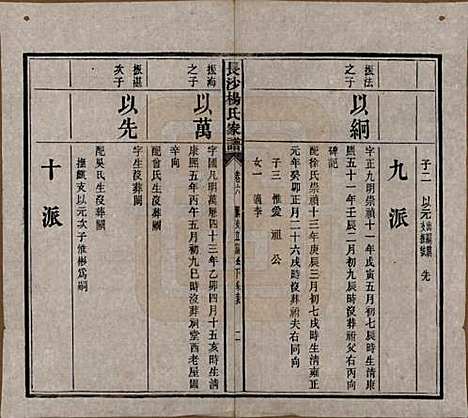 子二 以元 先
九派
振法之子
以綱
字正九明崇禎十一年戊寅五月初七辰時生清康
熙五十一年壬辰二月初九辰時沒葬祖父右同向
碑記
配徐氏崇禎十三年庚辰三月初七戌時生清雍正
元年癸卯正月二十六戌時沒葬祖夫右同向
子三 惟愛 祖 公
女一 適李
長沙楊氏家譜
二
振海之子
以萬
字國凡明萬曆四十三年乙卯四月十五亥時生清
康熙五年丙午五月初九巳時沒葬祠堂西老屋場
配曾氏生沒葬闕
振湛次子
以先
字生沒葬闕
配吳氏生沒葬闕
撫緦支以元次子惟彬爲嗣
十派